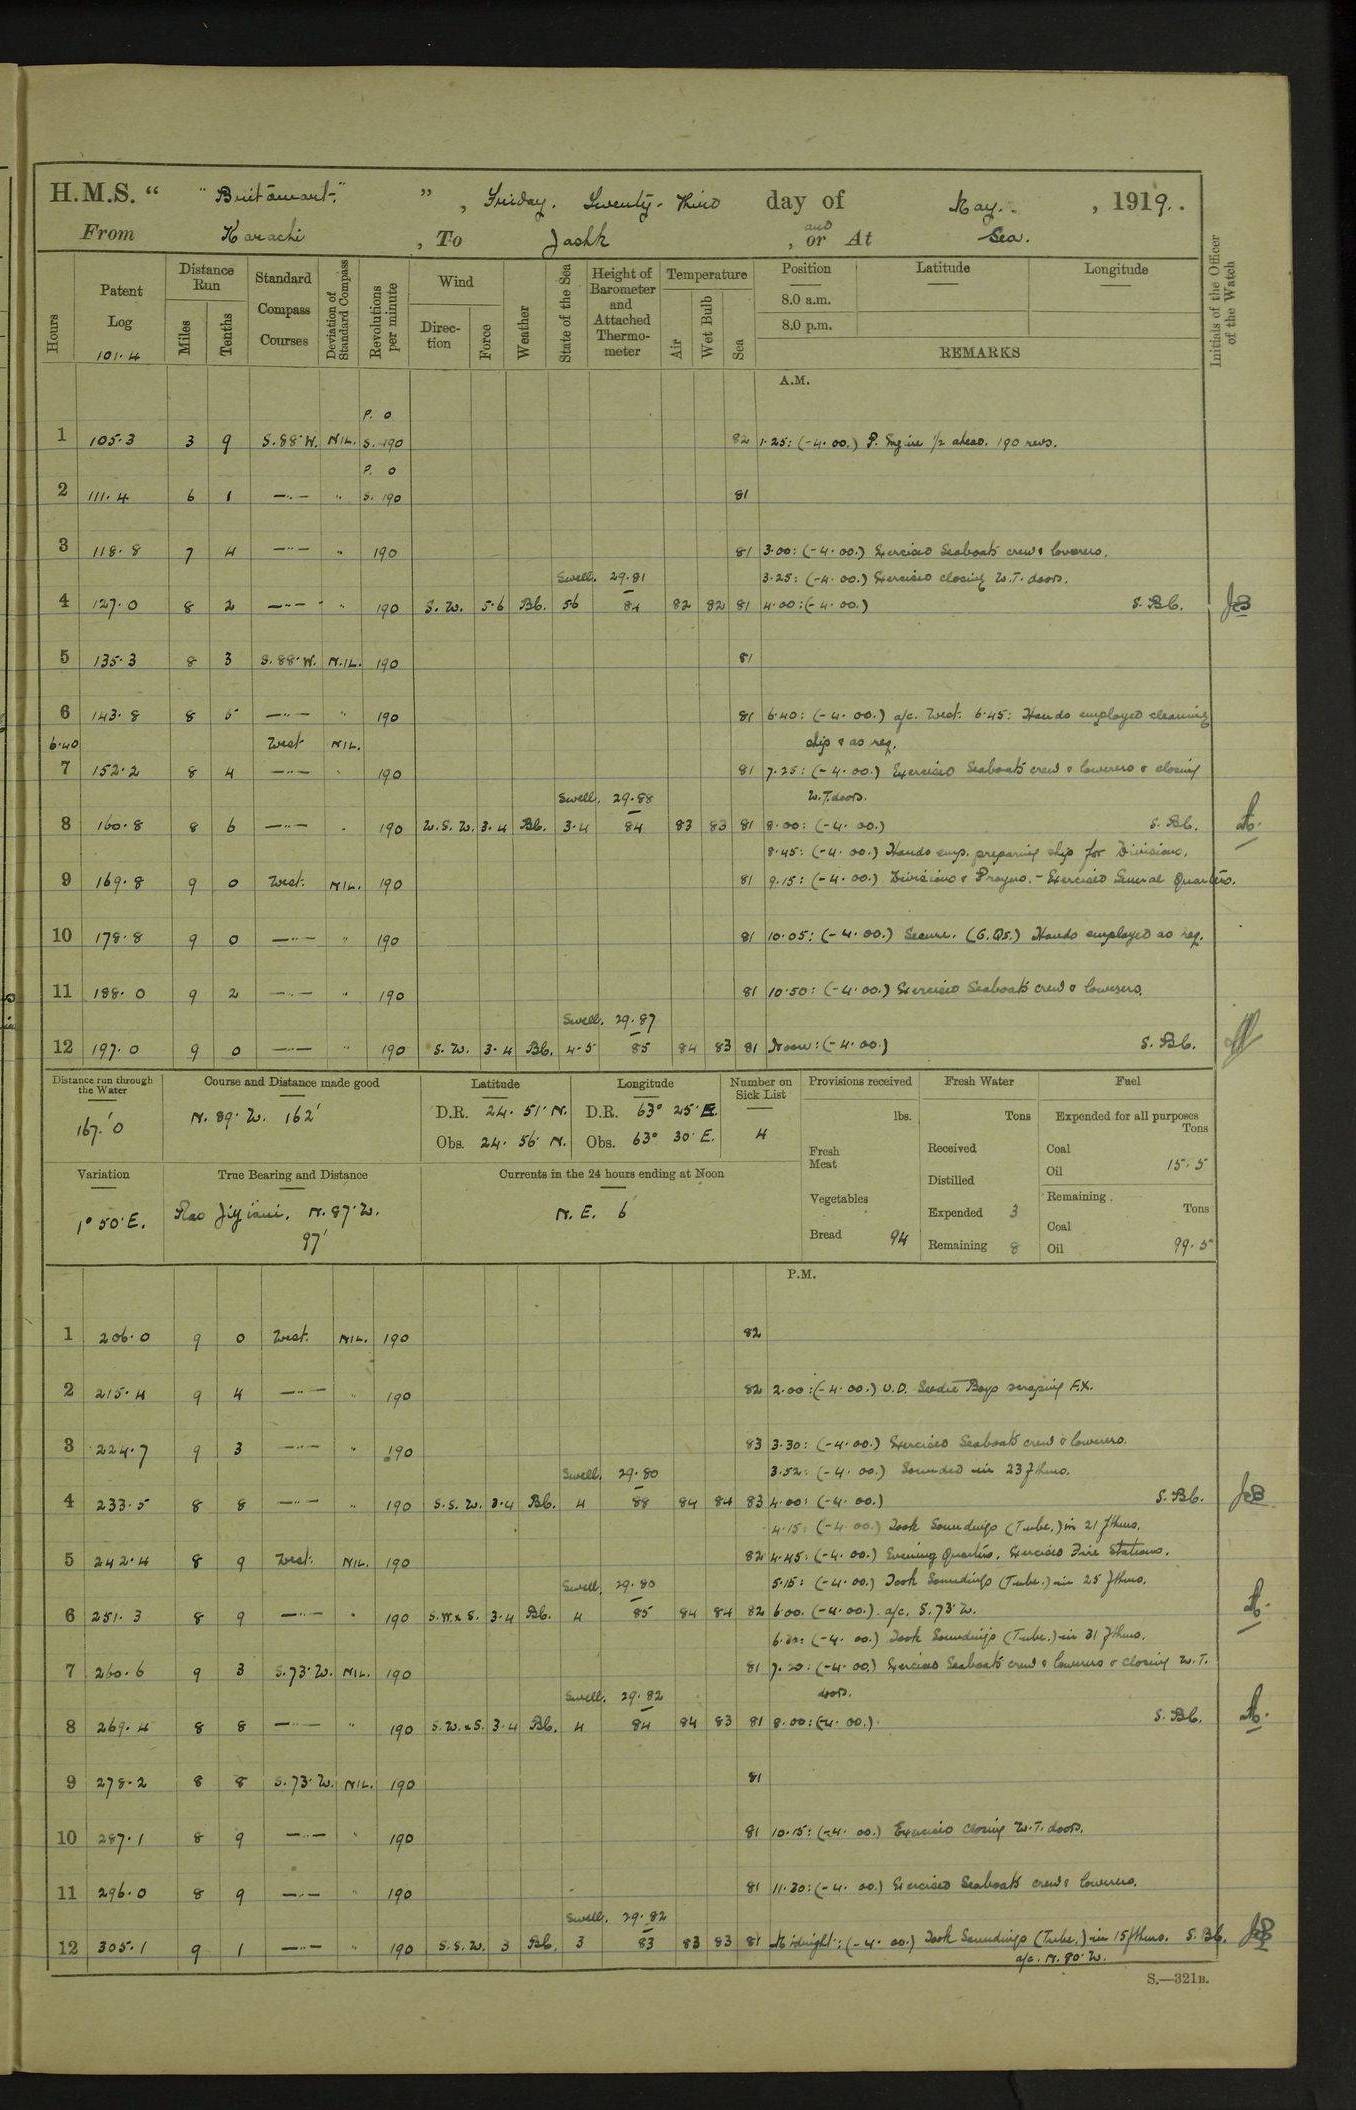 H.M.S. " "Britomart." ", Friday. Twenty-Third day of May. , 1919.
From Karachi , To Jashk , and or At Sea.
Hours
Patent Log 101.4
Distance Run Miles Tenths
Standard Compass Courses
Deviation of Standard Compass
Revolutions per minute
Wind Direction Force
Weather
State of the Sea
Height of Barometer and Attached Thermometer
Temperature Air Wet Bulb Sea
Position Latitude Longitude
8.0 a.m.
8.0 p.m.
REMARKS
Initials of the Officer of the Watch
A.M.
P. 0
1 105.3 3 9 S.88°W. NIL. S. 190 82 1.25: (-4.00.) P. Engine 1/2 ahead. 190 revs.
P. 0
2 111.4 6 1 —"— " S. 190 81
3 118.8 7 4 —"— " 190 81 3.00: (-4.00.) Exercised Seaboats crew & lowerers.
Swell. 29.81 3.25: (-4.00.) Exercised closing W.T. doors.
4 127.0 8 2 —"— " 190 S.W. 5.6 Bb. 56 84 82 82 81 4.00: (-4.00.) S. Bb.
5 135.3 8 3 S.88°W. NIL. 190 81
6 143.8 8 5 —"— " 190 81 6.40: (-4.00.) a/c. West. 6.45: Hands employed cleaning
6.40 West NIL. ship & as req.
7 152.2 8 4 —"— " 190 81 7.25: (-4.00.) Exercised Seaboats crew & lowerers & closing
Swell. 29.88 W.T. doors.
8 160.8 8 6 —"— " 190 W.S.W. 3.4 Bb. 3.4 84 83 83 81 8.00: (-4.00.) S. Bb.
8.45: (-4.00.) Hands emp. preparing ship for Divisions.
9 169.8 9 0 West. NIL. 190 81 9.15: (-4.00.) Divisions & Prayers. - Exercised General Quarters.
10 178.8 9 0 —"— " 190 81 10.05: (-4.00.) Secure. (G.Qs.) Hands employed as req.
11 188.0 9 2 —"— " 190 81 10.50: (-4.00.) Exercised Seaboats crew & lowerers.
Swell. 29.87
12 197.0 9 0 —"— 190 S.W. 3.4 Bb. 4.5 85 84 83 81 Noon: (-4.00.) S. Bb.
Distance run through the Water 167.'0
Course and Distance made good N. 89° W. 162'
Latitude D.R. 24. 51' N. Obs. 24. 56 N.
Longitude D.R. 63° 25' E. Obs. 63° 30' E.
Number on Sick List 4
Provisions received lbs.
Fresh Meat
Vegetables
Bread 94
Fresh Water Tons
Received
Distilled
Expended 3
Remaining 8
Fuel
Expended for all purposes Tons
Coal
Oil 15.5
Remaining Tons
Coal
Oil 99.5
Variation 1° 50' E.
True Bearing and Distance Ras N. 87° W. 97'
Currents in the 24 hours ending at Noon N.E. 6
P.M.
1 206.0 9 0 West. NIL. 190 82
2 215.4 9 4 —"— " 190 82 2.00: (-4.00.) U.D. Seedie Boys scraping F.X.
3 224.7 9 3 —"— " 190 83 3.30: (-4.00.) Exercised Seaboats crew & lowerers.
Swell. 29.80 3.52: (-4.00.) Sounded in 23 fthms.
4 233.5 8 8 —"— " 190 S.S.W. 3.4 Bb. 4 88 84 84 83 4.00: (-4.00.) S. Bb.
4.15: (-4.00.) Took Soundings (Tube.) in 21 fthms.
5 242.4 8 9 West. NIL. 190 82 4.45: (-4.00.) Evening Quarters. Exercised Fire Stations.
Swell. 29.80 5.15: (-4.00.) Took Soundings (Tube.) in 25 fthms.
6 251.3 8 9 —"— " 190 S.W.xS. 3.4 Bb. 4 85 84 84 82 6.00. (-4.00.) a/c. S.73°W.
6.30: (-4.00.) Took Soundings (Tube.) in 31 fthms.
7 260.6 9 3 S.73°W. NIL. 190 81 7.20: (-4.00.) Exercised Seaboats crew & lowerers & closing W.T.
Swell. 29.82 doors.
8 269.4 8 8 —"— " 190 S.W.xS. 3.4 Bb. 4 84 84 83 81 8.00: (-4.00.) S. Bb.
9 278.2 8 8 S.73°W. NIL. 190 81
10 287.1 8 9 —"— " 190 81 10.15: (-4.00.) Exercised closing W.T. doors.
11 296.0 8 9 —"— " 190 81 11.30: (-4.00.) Exercised Seaboats crew & lowerers.
Swell. 29.82
12 305.1 9 1 —"— " 190 S.S.W. 3 Bb. 3 83 83 83 81 Midnight: (-4.00.) Took Soundings (Tube.) in 15 fthms. S. Bb.
a/c. N. 80° W.
S.—321B.